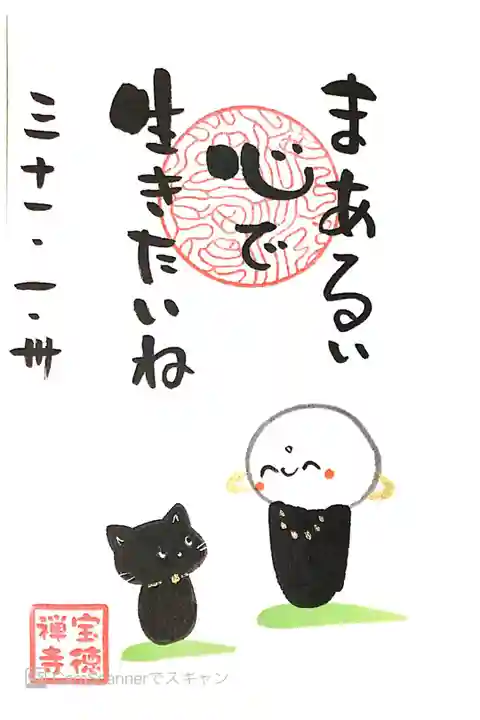 まあるい
心で
生きたいね
三十一・一・卅
宝徳
禅寺
CamScannerでスキャン